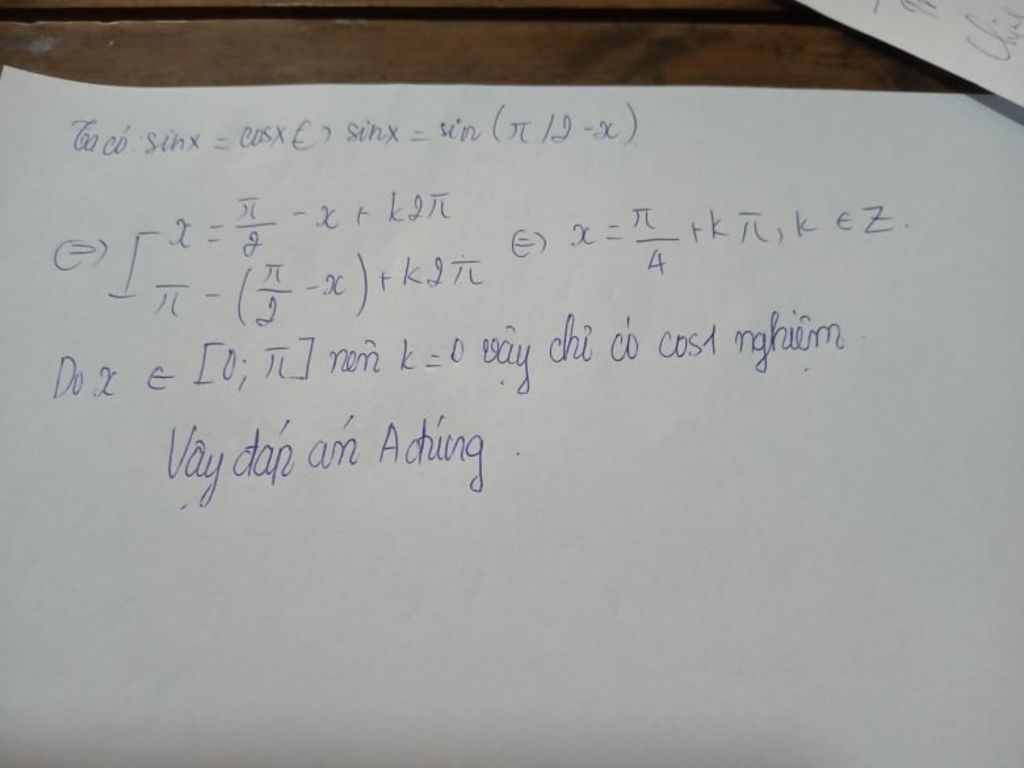 Ta có: sinx = cosx <=> sinx = sin (π/2 - x)
<=> [ x = π/2 - x + k2π
π - (π/2 - x) + k2π <=> x = π/4 + kπ, k ∈ Z.
Do x ∈ [0; π] nên k = 0 vậy chỉ có cos1 nghiệm
Vậy đáp án A đúng.